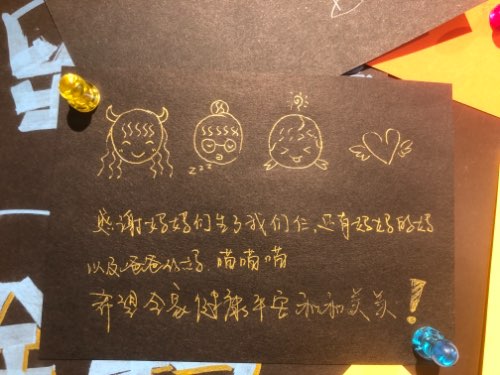 zzz
感谢妈妈们生了我们仨,还有妈妈的妈
以及爸爸的妈,喵喵喵
希望全家健康平安和和美美!